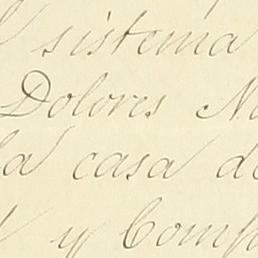 sistema
Dolores
la casa de
y Comp